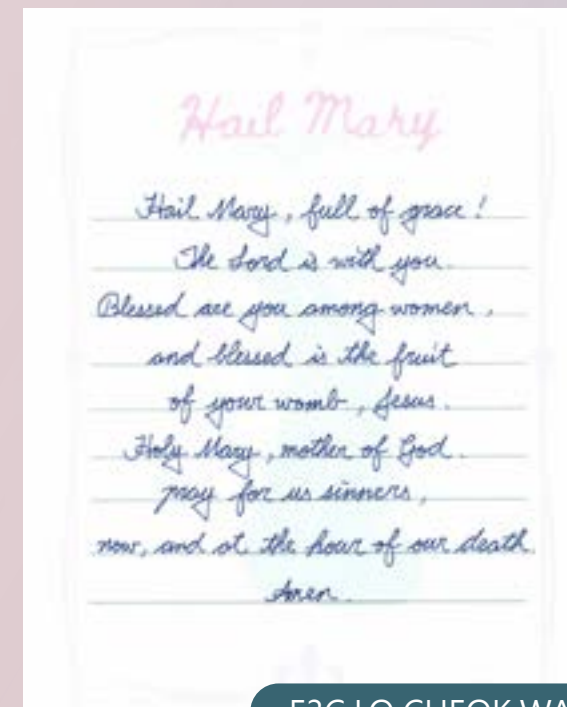 Hail Mary
Hail Mary, full of grace!
The Lord is with you.
Blessed are you among women,
and blessed is the fruit
of your womb, Jesus.
Holy Mary, mother of God.
pray for us sinners,
now, and at the hour of our death.
Amen.